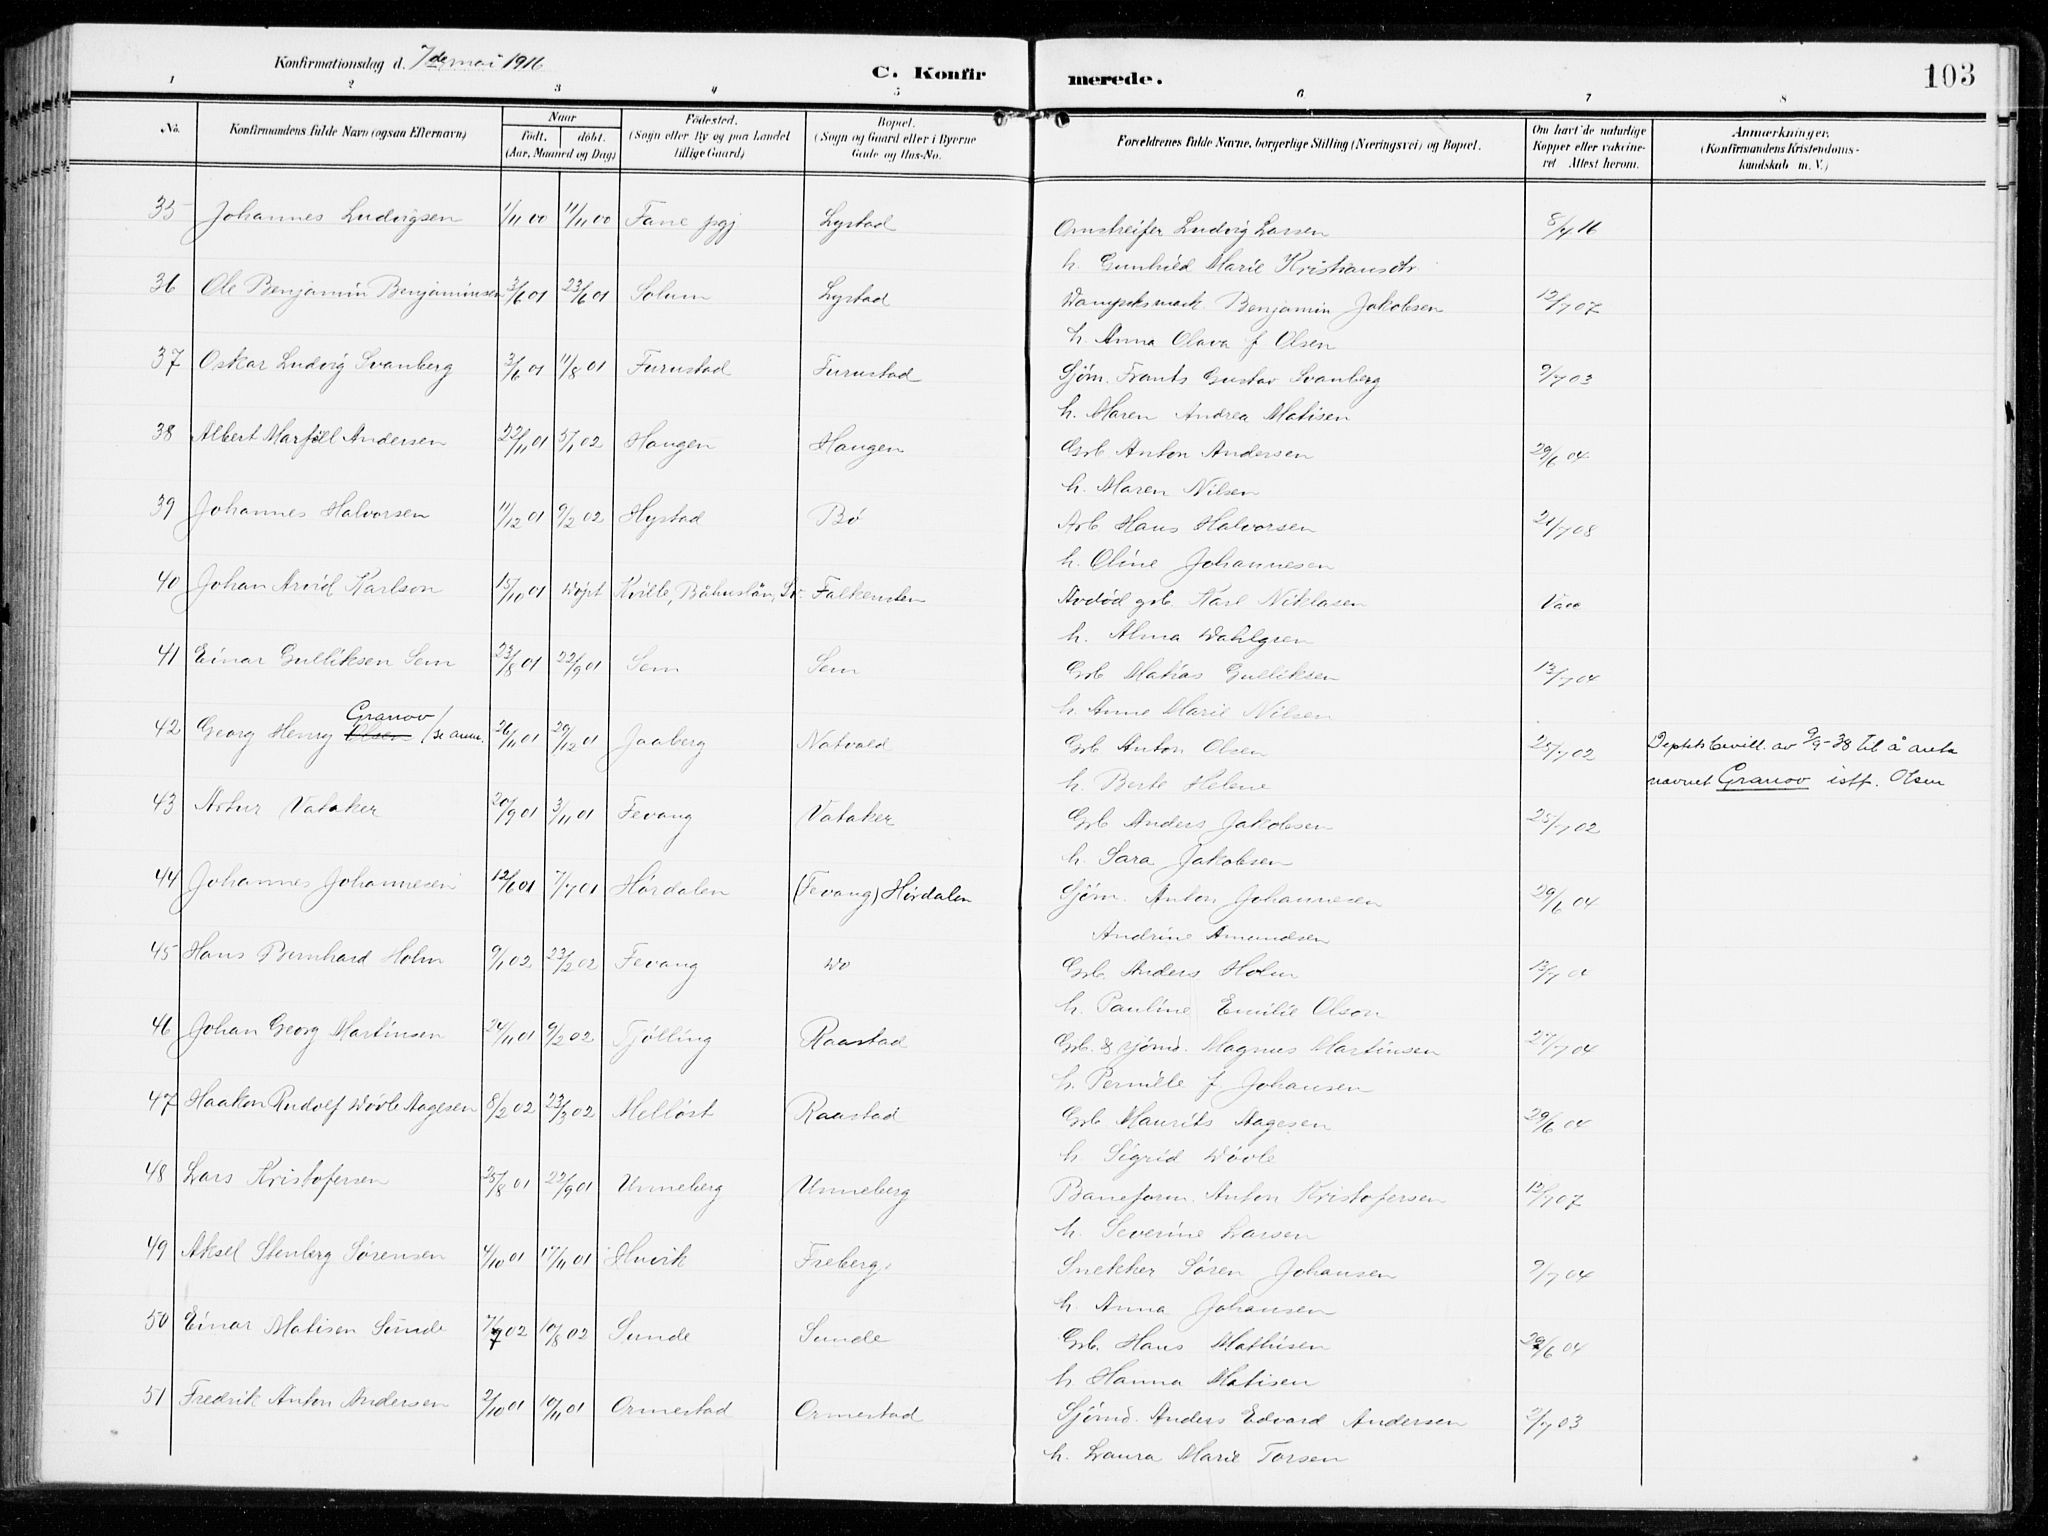 Konfirmationsdag d. 7de mai 1916
C. Konfirmerede.
103
1 2 3 4 5 6 7 8
No. Konfirmandens fulde Navn (ogsaa Efternavn) Naar født. døbt. (Aar, Maaned og Dag) Fødested. (Sogn eller By og paa Landet tillige Gaard) Bopæl. (Sogn og Gaard eller i Byerne Gade og Hus-No. Forældrenes fulde Navne, borgerlige Stilling (Næringsvei) og Bopæl. Om havt de naturlige Kopper eller vaccineret Attest herom. Anmærkninger. (Konfirmandens Kristendomskundskab m. V.)
35 Johannes Ludvigsen 1/11 00 11/11 00 Fane pgj Lystad Omstreifer Ludvig Larsen 8/4 16
h. Gunhild Marie Kristiansdtr
36 Ole Benjamin Benjaminsen 3/6 01 23/6 01 Solum Lystad Benjamin Jakobsen 12/7 07
h. Anna Olava f. Olsen
37 Oskar Ludvig Svanberg 3/6 01 11/8 01 Furustad Furustad Sjøm. Frants Gustav Svanberg 9/7 03
h. Maren Andrea Matisen
38 Albert Marfell Andersen 22/11 01 5/1 02 Haugen Haugen Grb. Anton Andersen 29/6 04
h. Maren Nilsen
39 Johannes Halvorsen 11/12 01 9/2 02 Hystad Bø Arb. Hans Halvorsen 21/7 08
h. Oline Johannesen
40 Johan Arvid Karlson 15/10 01 Døpt Kville, Båhuslän, Sv. Falkensten Avdød grb. Karl Niklasen Vacc
h. Alma Dahlgren
41 Einar Gulliksen Sem 23/8 01 22/9 01 Sem Sem Grb. Matias Gulliksen 13/7 04
h. Anne Marie Nilsen
42 Georg Henry Olsen Granov /se anm. 26/11 01 29/12 01 Jaaberg Natvald Grb. Anton Olsen 25/7 02 Deptsbevill. av 9/9-38 til å anta
h. Berte Helene navnet Granov istf. Olsen
43 Artur Vataker 20/9 01 3/11 01 Fevang Vataker Grb. Anders Jakobsen 25/7 02
h. Sara Jakobsen
44 Johannes Johannesen 12/6 01 7/7 01 Hørdalen (Fevang) Hørdalen Sjøm. Anton Johannesen 29/6 04
Andrine Amundsen
45 Hans Bernhard Holm 9/1 02 23/2 02 Fevang Do Grb. Anders Holm
h. Pauline Emilie Olson
46 Johan Georg Martinsen 24/11 01 9/2 02 Tjølling Raastad Grb. & sjømd. Magnus Martinsen 27/7 04
h. Pernille f. Johansen
47 Haakon Rudolf Døvle Aagesen 8/2 02 23/3 02 Melløst Raastad Grb. Maurits Aagesen 29/6 04
h. Sigrid Døvle
48 Lars Kristofersen 25/8 01 22/9 01 Unneberg Unneberg Baneform. Anton Kristofersen 12/7 07
h. Severine Larsen
49 Aksel Stenberg Sørensen 4/10 01 17/11 01 Huvik Freberg Snekker Søren Johansen 9/7 04
h. Anna Johansen
50 Einar Matisen Sunde 7/7 02 10/8 02 Sunde Sunde Grb. Hans Mathisen 29/6 04
h Hanna Matisen
51 Fredrik Anton Andersen 2/10 01 10/11 01 Ormestad Ormestad Sjømd. Anders Edvard Andersen 2/7 03
h. Laura Marie Torsen